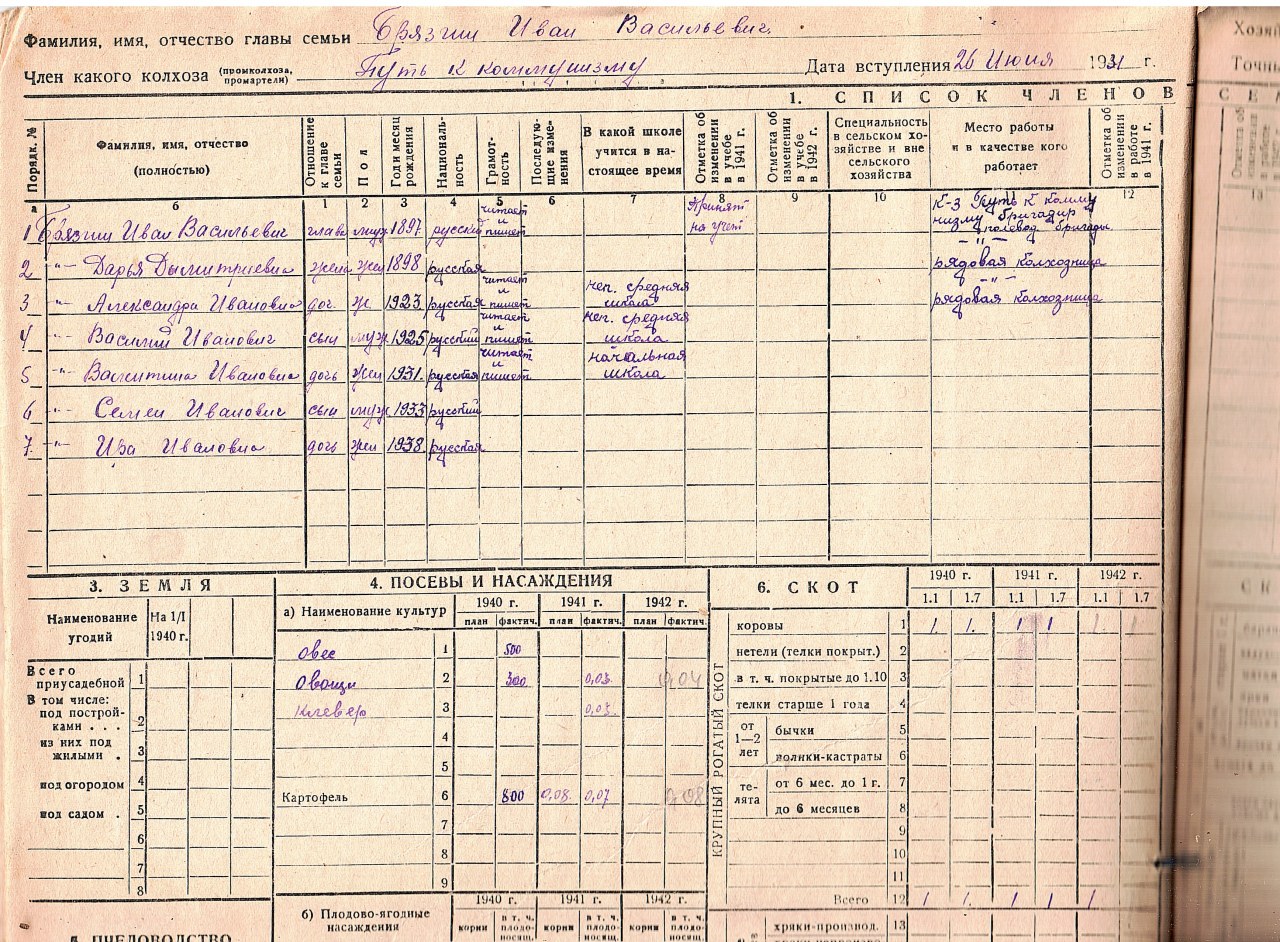 Фамилия, имя, отчество главы семьи Брязгин Иван Васильевич
Член какого колхоза (промколхоза, промартели) Путь к коммунизму Дата вступления 26 Июня 1931 г.
1. СПИСОК ЧЛЕНОВ
Порядк. № Фамилия, имя, отчество (полностью) Отношение к главе семьи Пол Год и месяц рождения Националь-ность Грамот-ность Последую-щие изме-нения В какой школе учится в на-стоящее время Отметка об изменении в учебе в 1941 г. Отметка об изменении в учебе в 1942 г. Специальность в сельском хо-зяйстве и вне сельского хозяйства Место работы и в качестве кого работает Отметка об изменении в работе в 1941 г.
а б 1 2 3 4 5 6 7 8 9 10 11 12
1 Брязгин Иван Васильевич глава муж 1897 русский читает и пишет Принят на учет К-з Путь к комму низму бригадир полевод. бригады
2 -"- Дарья Дымитриевна жена жен 1898 русская -"- рядовая колхозница
3 -"- Александра Ивановна доч. ж 1923 русская читает и пишет неп. средняя школа -"- рядовая колхозница
4 -"- Василий Иванович сын муж 1925 русский читает и пишет неп. средняя школа
5 -"- Валентина Ивановна дочь жен 1931. русская читает и пишет начальная школа
6 -"- Семен Иванович сын муж 1933 русский
7. -"- Ира Ивановна дочь жен 1938. русская
3. ЗЕМЛЯ
Наименование угодий На 1/I 1940 г.
Всего приусадебной 1
В том числе: под построй-ками . . . 2
из них под жилыми . 3
под огородом 4
под садом . 5
6
7
8
4. ПОСЕВЫ И НАСАЖДЕНИЯ
а) Наименование культур 1940 г. 1941 г. 1942 г.
план фактич. план фактич. план фактич.
овес 1 500
овощи 2 300 0,03 0,04
клевер 3 0,03
4
5
Картофель 6 800 0,08. 0,07 0,08
7
8
9
б) Плодово-ягодные насаждения 1940 г. 1941 г. 1942 г.
корни в т. ч. плодо-носящ. корни в т. ч. плодо-носящ. корни в т. ч. плодо-носящ.
6. СКОТ 1940 г. 1941 г. 1942 г.
1.1 1.7 1.1 1.7 1.1 1.7
КРУПНЫЙ РОГАТЫЙ СКОТ
коровы 1 1. 1. 1 1 1. 1
нетели (телки покрыт.) 2
в т. ч. покрытые до 1.10 3
телки старше 1 года 4
от 1—2 лет бычки 5
волики-кастраты 6
те-лята от 6 мес. до 1 г. 7
до 6 месяцев 8
9
10
11
Всего 12 1 1. 1 1 1
хряки-производ. 13
5. ПЧЕЛОВОДСТВО
Хозяй
Точны
СЕЛ
13
СК